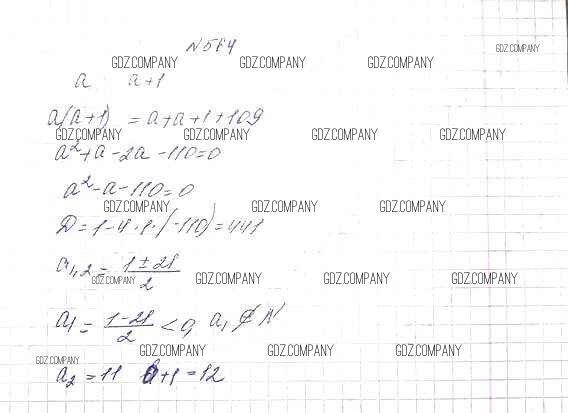 № 564
GDZ.COMPANY GDZ.COMPANY GDZ.COMPANY GDZ.COMPANY
a a+1
a(a+1) = a+a+1+109
GDZ.COMPANY GDZ.COMPANY GDZ.COMPANY GDZ.COMPANY
a²+a-2a-110=0
a²-a-110=0
GDZ.COMPANY GDZ.COMPANY GDZ.COMPANY
D=1-4·1·(-110)=441
a₁,₂ = (1±21)/2
GDZ.COMPANY GDZ.COMPANY GDZ.COMPANY GDZ.COMPANY
a₁ = (1-21)/2 < 0, a₁ ∉ N
GDZ.COMPANY GDZ.COMPANY GDZ.COMPANY GDZ.COMPANY
a₂ = 11 a+1 = 12